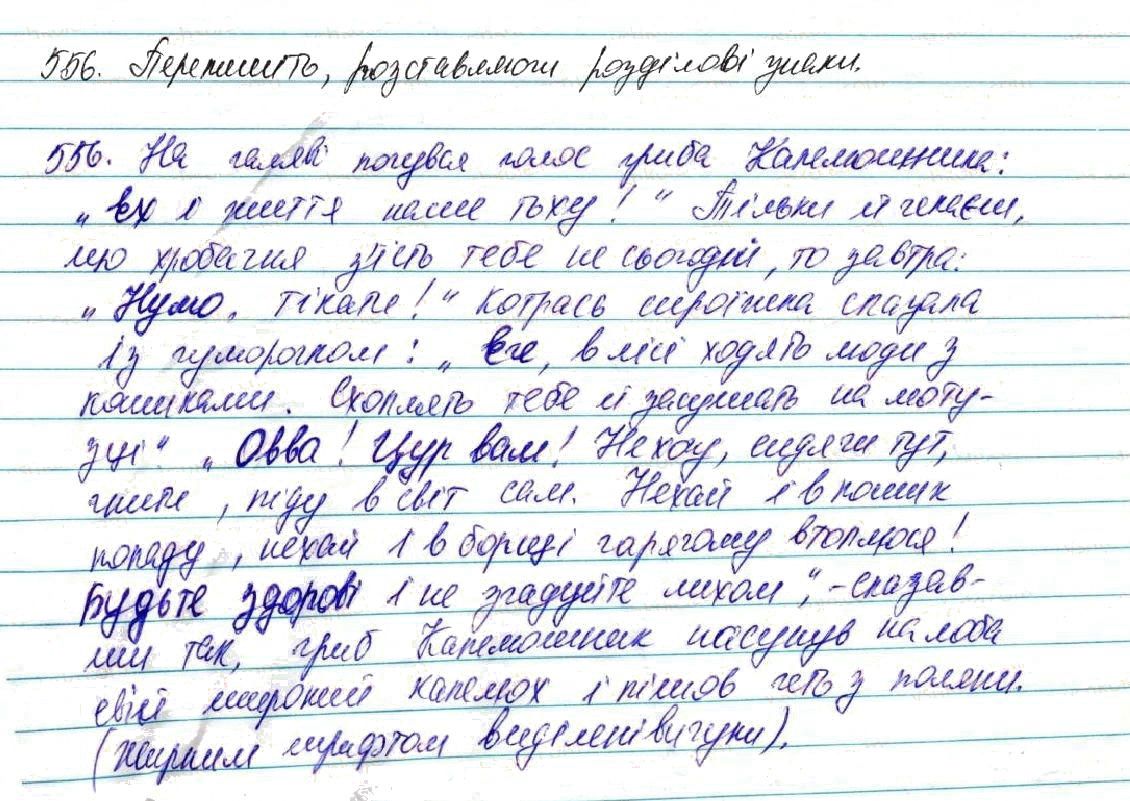 556. Перепишіть, розставляючи розділові знаки.
556. На галяві почувся голос гриба Капелюшника:
„Ех і життя наше тьху!“ Тільки й чекаєш,
що хробачня з'їсть тебе не сьогодні, то завтра:
„Нумо, тікати!“ Котрась сироїжка сказала
із гуморочком: „Еге, в лісі ходять люди з
кошиками. Схоплять тебе й засушать на моту-
зці“ „Овва! Цур вам! Не хочу, сидячи тут,
гнити, піду в світ сам. Нехай і в кошик
попаду, нехай і в борщі гарячому втоплюся!
Будьте здорові і не згадуйте лихом“, - сказав-
ши так, гриб Капелюшник насунув на лоба
свій широкий капелюх і пішов геть з поляни.
(Жирним шрифтом виділені вигуки).